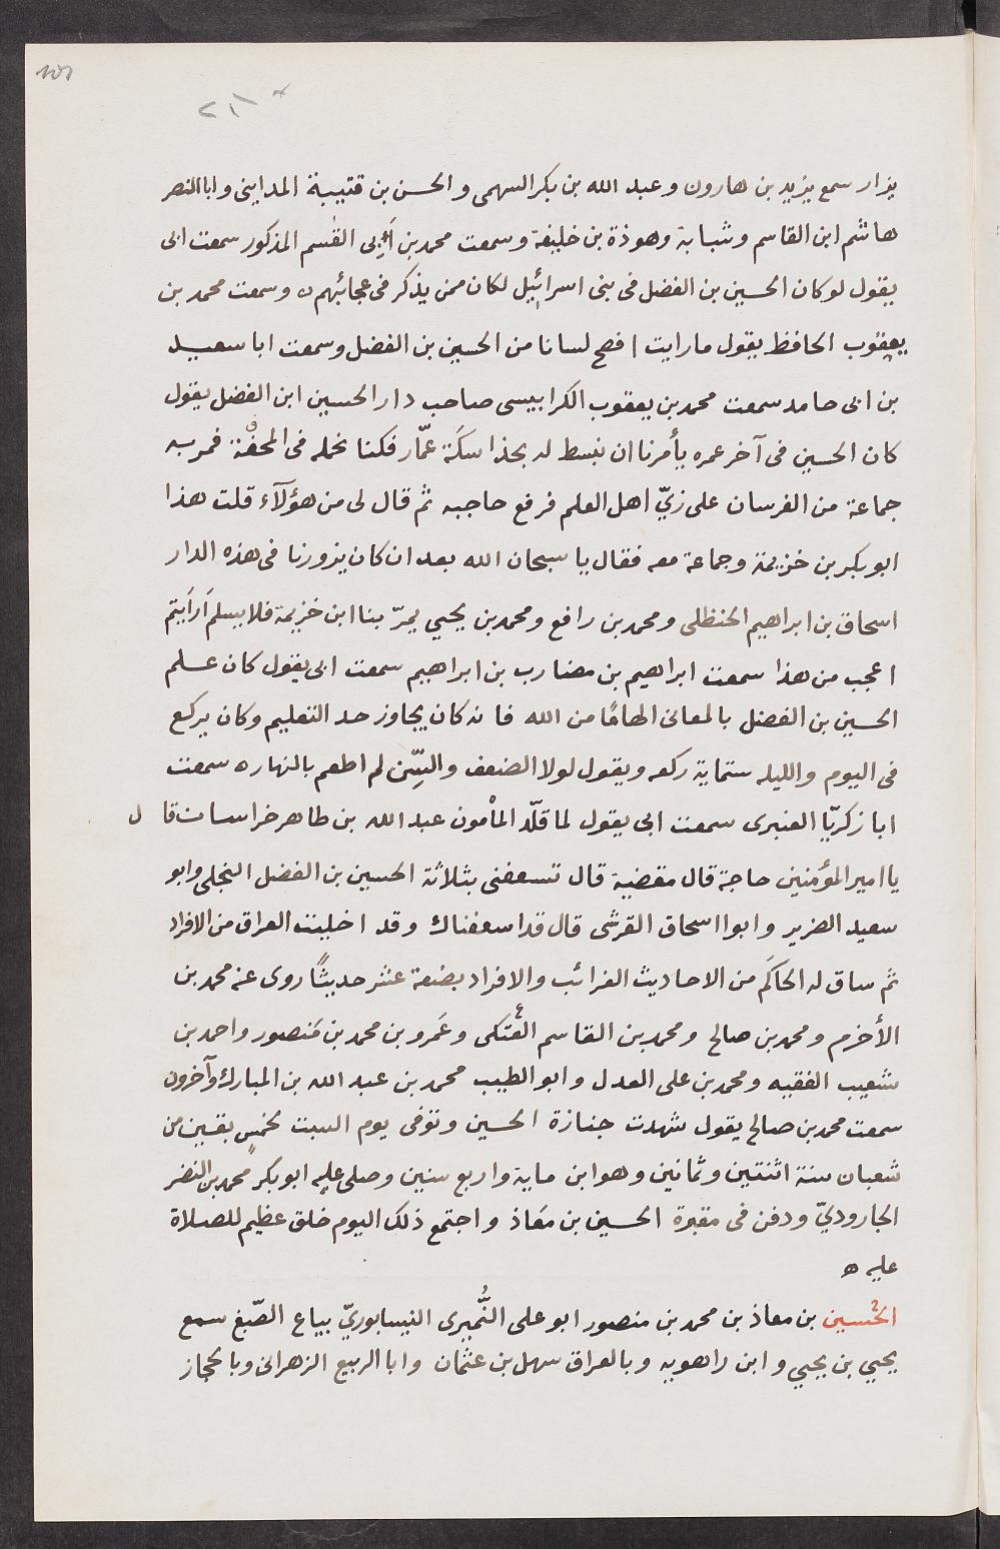 101
٢١٦
يزار سمع يزيد بن هارون وعبد الله بن بكر السهمى والحسن بن قتيبة المداينى وابا النصر
هاشم ابن القاسم وشبابة وهوذة بن خليفة وسمعت محمد بن أبى القسم المذكور سمعت ابى
يقول لوكان الحسين بن الفضل فى بنى اسرائيل لكان ممن يذكر فى عجائبهم ه وسمعت محمد بن
يعقوب الحافظ يقول ما رايت افصح لسانا من الحسين بن الفضل وسمعت ابا سعيد
بن ابى حامد سمعت محمد بن يعقوب الكرابيسى صاحب دار الحسين ابن الفضل يقول
كان الحسين فى آخر عمره يأمرنا ان نبسط له بحذا سكّة عمّار فكنا نحمله فى المحفّة فمر به
جماعة من الفرسان على زيّ اهل العلم فرفع حاجبه ثم قال لى من هؤلآء قلت هذا
ابو بكر بن خزيمة وجماعة معه فقال يا سبحان الله بعد ان كان يزورنا فى هذه الدار
اسحاق بن ابراهيم الحنظلى ومحمد بن رافع ومحمد بن يحيى يمرّ بنا ابن خزيمة فلا يسلم أرأيتم
اعجب من هذا سمعت ابراهيم بن مضارب بن ابراهيم سمعت ابى يقول كان علم
الحسين بن الفضل بالمعانى الهامًا من الله فانه كان يجاوز حد التعليم وكان يركع
فى اليوم والليله ستماية ركعه ويقول لولا الضعف والسِّن لم اطعم بالنهار ه سمعت
ابا زكريّا العنبرى سمعت ابى يقول لما قلّد المأمون عبد الله بن طاهر خراسان قال
يا امير المؤمنين حاجة قال مقضية قال تسعفنى بثلاثة الحسين بن الفضل البجلى وابو
سعيد الضرير وابوا اسحاق القرشى قال قد اسعفناك وقد اخليت العراق من الافراد
ثم ساق له الحاكم من الاحاديث الغرائب والافراد بضعة عشر حديثًا روى عنه محمد بن
الأخرم ومحمد بن صالح ومحمد بن القاسم العتكى وعَمرو بن محمد بن مَنصور واحمد بن
شعيب الفقيه ومحمد بن على العدل وابو الطيب محمد بن عبد الله بن المبارك وآخرون
سمعت محمد بن صالح يقول شهدت جنازة الحسين وتوفى يوم السبت لخمسٍ بقين من
شعبان سنة اثنتين وثمانين وهو ابن ماية واربع سنين وصلى عليه ابو بكر محمد بن النضر
الجاروديّ ودفن فى مقبرة الحسين بن معاذ واجتمع ذلك اليوم خلق عظيم للصلاة
عليه ه
الحسين بن معاذ بن محمد بن منصور ابو على النُّميرى النيسابوريّ بياع الصّبغ سمع
يحيى بن يحيى وابن راهويه وبالعراق سهل بن عثمان وابا الربيع الزهرانى وبالحجاز